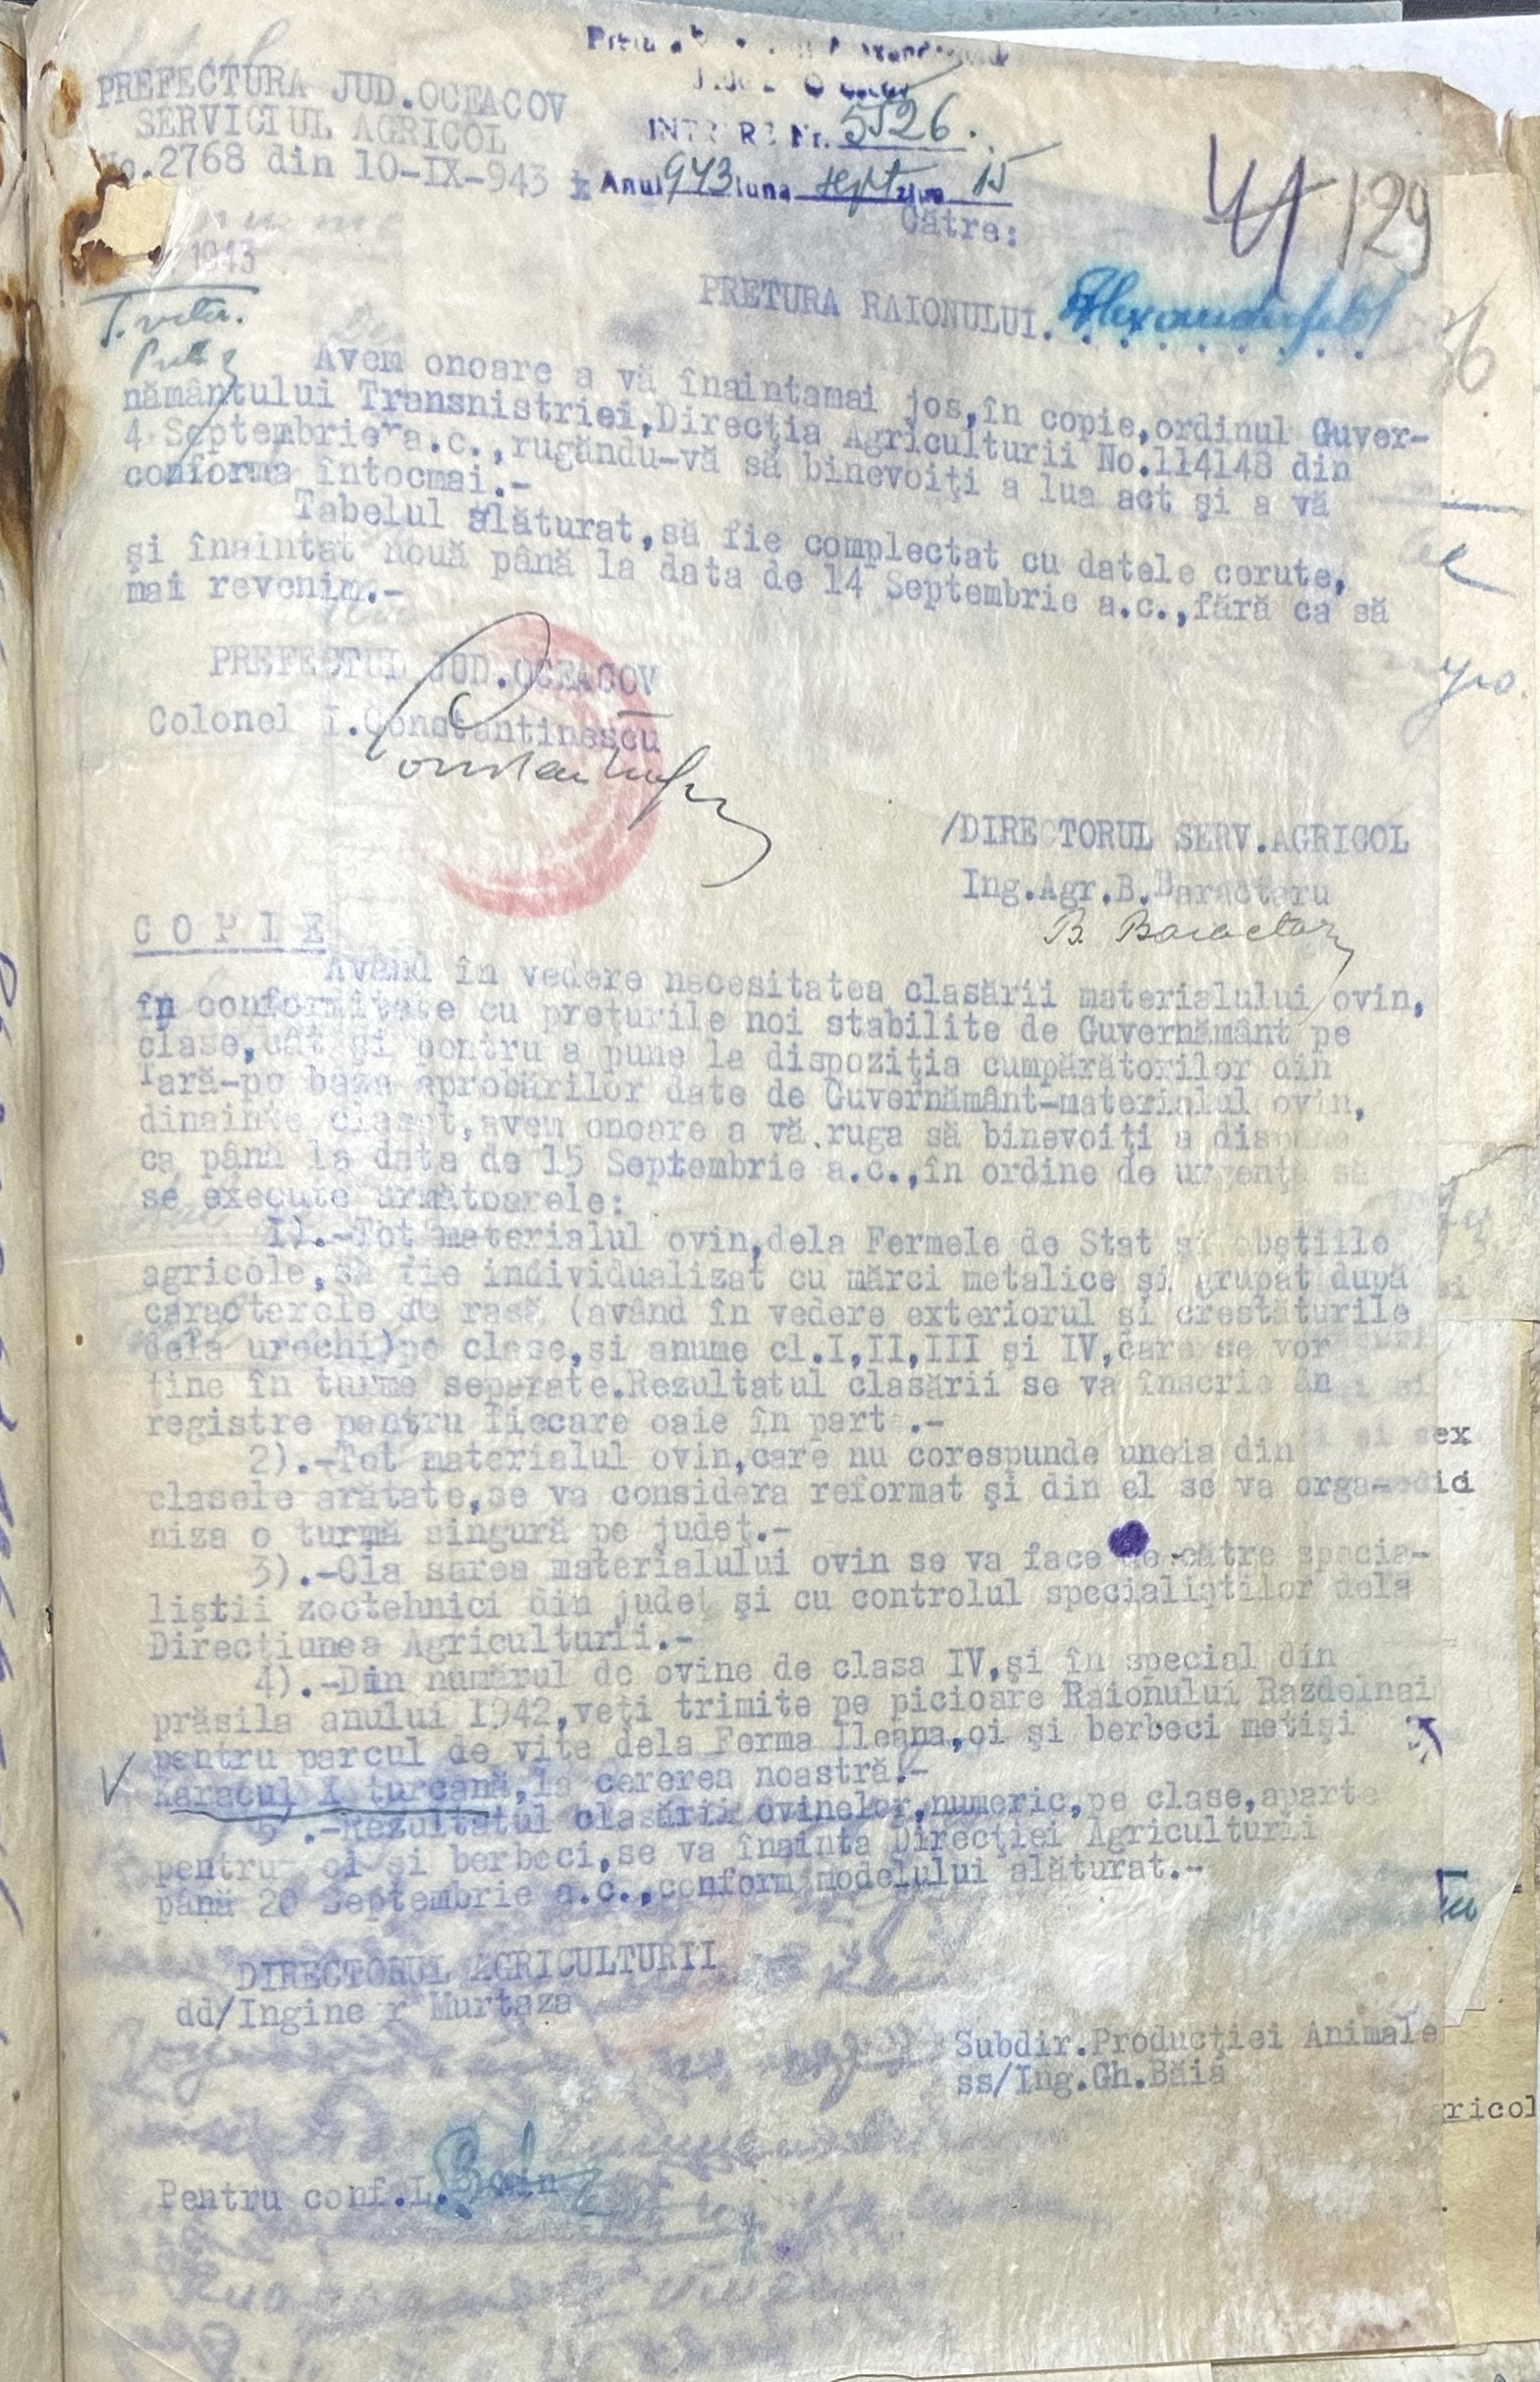 PREFECTURA JUD.OCEACOV
SERVICIUL AGRICOL
No.2768 din 10-IX-943
INTRARE Nr. 5526.
Anul 943 luna sept ziua 15
41 129
1943
Către:
PRETURA RAIONULUI. Alexanderfeld
Avem onoare a vă înaintamai jos,în copie,ordinul Guver-
nământului Transnistriei,Direcţia Agriculturii No.114148 din
4 Septembrie a.c.,rugându-vă să binevoiţi a lua act şi a vă
conforma întocmai.-
Tabelul alăturat,să fie complectat cu datele cerute,
şi înaintat nouă până la data de 14 Septembrie a.c.,fără ca să
mai revenim.-
PREFECTUL JUD.OCEACOV
Colonel I.Constantinescu
/DIRECTORUL SERV.AGRICOL
Ing.Agr.B.Baractaru
B. Baractaru
C O P I E
Având în vedere necesitatea clasării materialului ovin,
în conformitate cu preţurile noi stabilite de Guvernământ pe
clase,cât şi pentru a pune la dispoziţia cumpărătorilor din
Ţară-pe baza aprobărilor date de Guvernământ-materialul ovin,
dinainte clasat,avem onoare a vă ruga să binevoiţi a dispune
ca până la data de 15 Septembrie a.c.,în ordine de urgenţă să
se execute următoarele:
1).-Tot materialul ovin,dela Fermele de Stat şi obştiile
agricole,să fie individualizat cu mărci metalice şi grupat după
caracterele de rasă (având în vedere exteriorul si crestăturile
dela urechi)pe clase,si anume cl.I,II,III şi IV,care se vor
ţine în turme separate.Rezultatul clasării se va înscrie în
registre pentru fiecare oaie în parte.-
2).-Tot materialul ovin,care nu corespunde uneia din
clasele arătate,se va considera reformat şi din el se va orga-
niza o turmă singură pe judeţ.-
3).-Cla sarea materialului ovin se va face de către specia-
liştii zootehnici din judeţ şi cu controlul specialiştilor dela
Direcţiunea Agriculturii.-
4).-Din numărul de ovine de clasa IV,şi în special din
prăsila anului 1942,veţi trimite pe picioare Raionului Razdelnai
pentru parcul de vite dela Ferma Ileana,oi şi berbeci metişi
Karacul X turcană,la cererea noastră.-
5 .-Rezultatul clasării ovinelor,numeric,pe clase,aparte
pentru oi şi berbeci,se va înainta Direcţiei Agriculturii
până 20 Septembrie a.c.,conform modelului alăturat.-
DIRECTORUL AGRICULTURII
dd/Ingine r Murtaza
Subdir.Producţiei Animale
ss/Ing.Gh.Băia
Pentru conf.L.